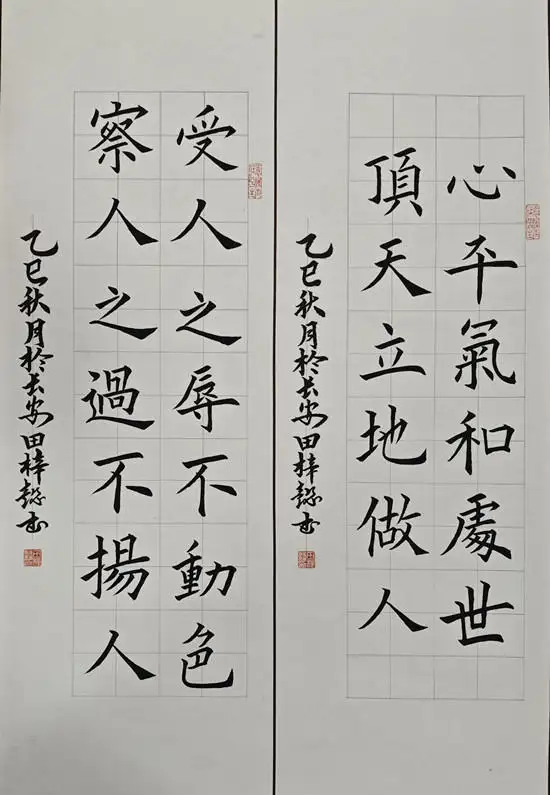 心平氣和處世
頂天立地做人
乙巳秋月於长安田梓懿书
受人之辱不動色
察人之過不揚人
乙巳秋月於长安田梓懿书